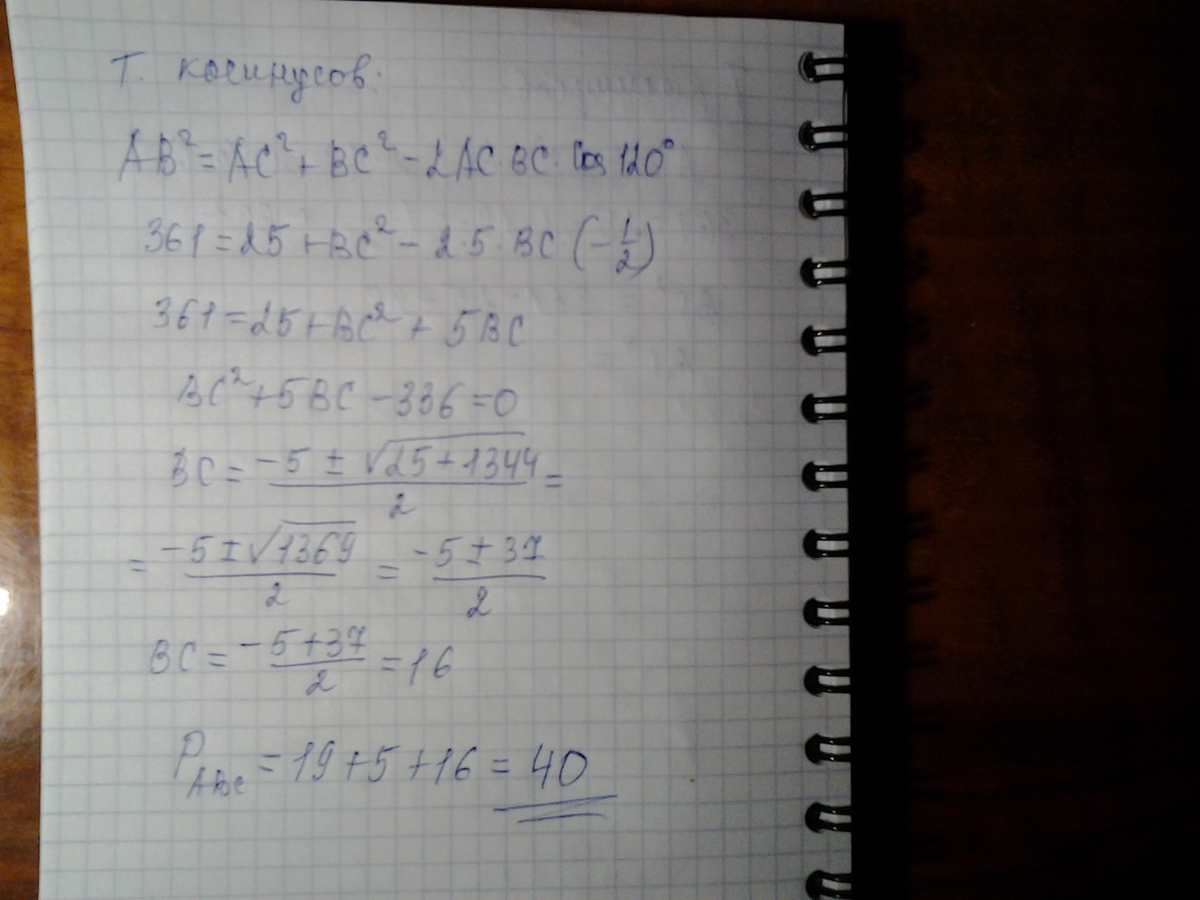 Т. косинусов.
AB² = AC² + BC² - 2AC·BC·Cos 120°
361 = 25 + BC² - 2·5·BC (-1/2)
361 = 25 + BC² + 5BC
BC² + 5BC - 336 = 0
BC = (-5 ± √(25 + 1344))/2 =
= (-5 ± √1369)/2 = (-5 ± 37)/2
BC = (-5 + 37)/2 = 16
P_ABC = 19 + 5 + 16 = 40